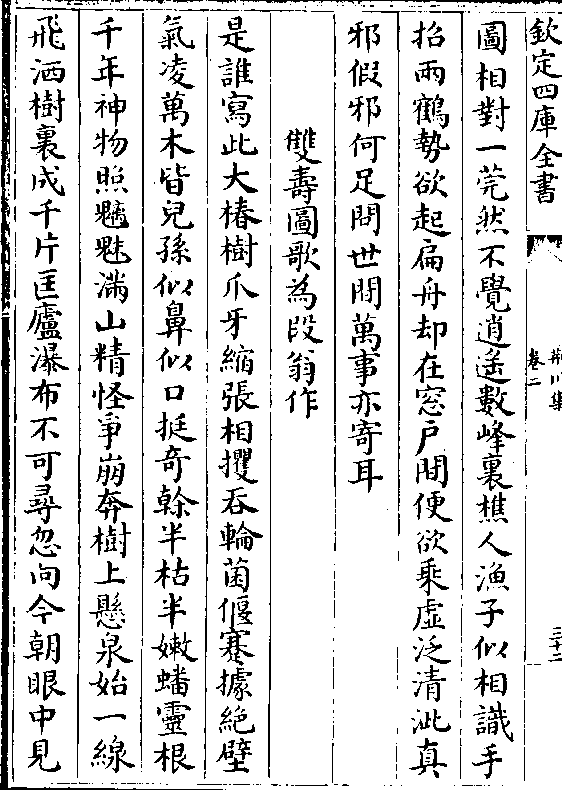 欽定四庫全書
荆川集
卷二
三十二
圖相對一莞然不覺逍遙數峰裏樵人漁子似相識手
招兩鶴勢欲起扁舟却在窓戶間便欲乘虛泛清泚真
邪假邪何足問世間萬事亦寄耳
雙壽圖歌為段翁作
是誰寫此大椿樹爪牙縮張相攫吞輪菌偃蹇據絶壁
氣凌萬木皆兒孫似鼻似口挺奇榦半枯半嫩蟠靈根
千年神物照魑魅滿山精怪爭崩奔樹上懸泉始一線
飛洒樹裏成千片匡廬瀑布不可尋忽向今朝眼中見